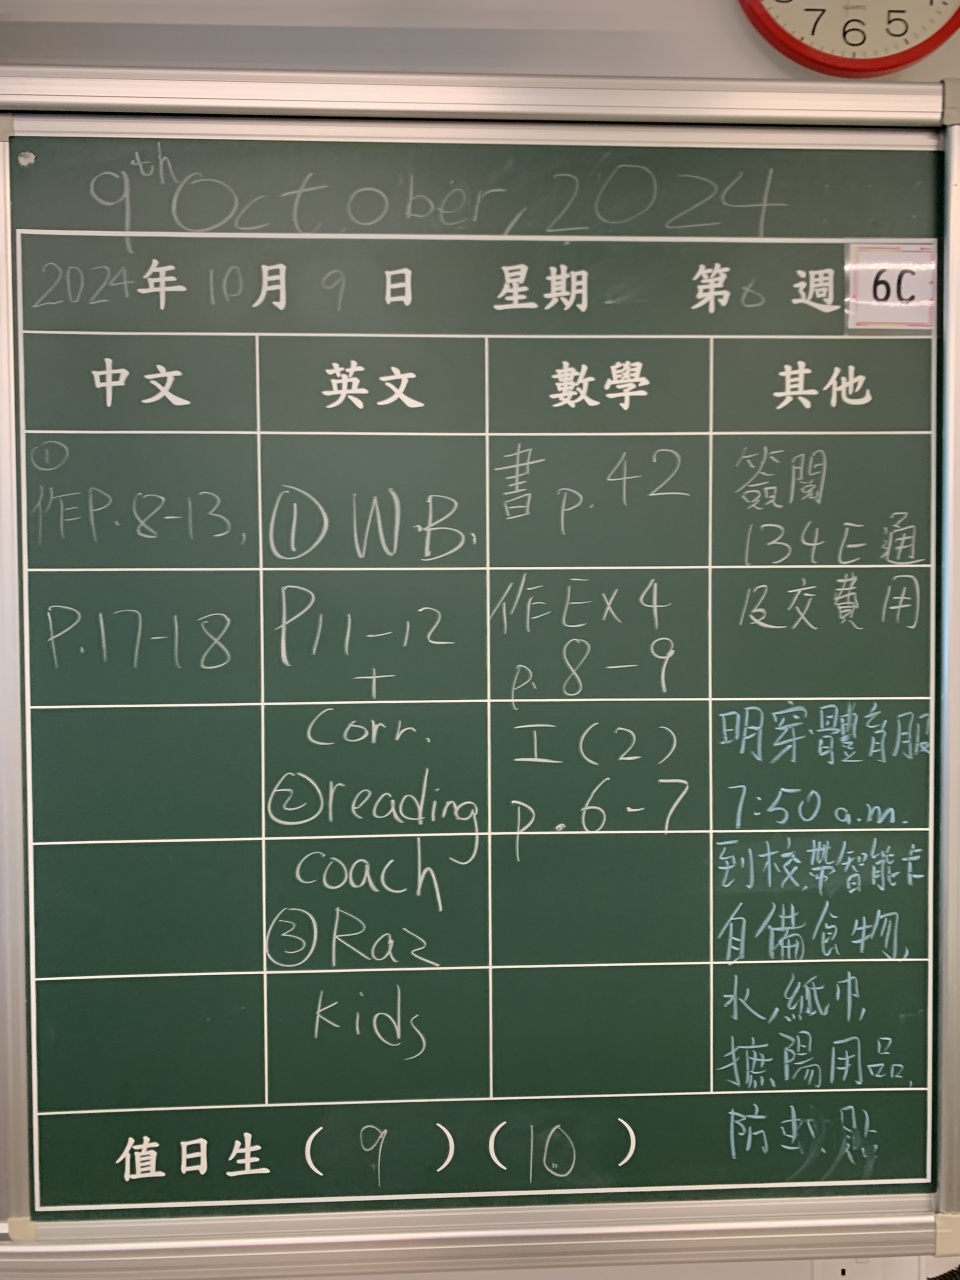 7 6 5
9th October, 2024
2024年 10月 9日 星期 第6週 6C
中文 英文 數學 其他
①
作P.8-13,
P.17-18
① W.B.
P11-12
+
Corr.
②reading
coach
③Raz
kids
書p.42
作Ex4
p.8-9
工(2)
p.6-7
簽閱
134E通
及交費用
明穿體育服
7:50 a.m.
到校,帶智能卡
自備食物,
水,紙巾,
摭陽用品,
防蚊貼
值日生(9)(10)